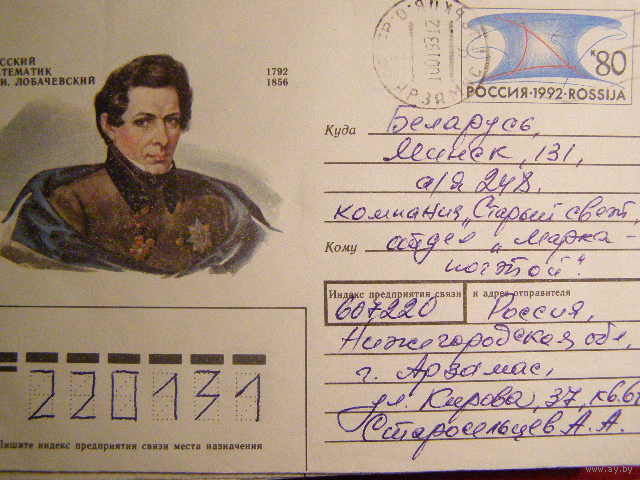 РУССКИЙ
МАТЕМАТИК
Н. И. ЛОБАЧЕВСКИЙ
1792
1856
к80
РОССИЯ·1992·ROSSIJA
АРЗАМАС
Куда Беларусь,
Минск, 131,
а/я 248.
компания „Старый свет,
Кому отдел „Марка-
почтой".
Индекс предприятия связи и адрес отправителя
607220 Россия,
Нижегородская обл,
г. Арзамас,
ул. Кирова, 37, кв.
Старосельцев А. А.
220131
Пишите индекс предприятия связи места назначения
www.ay.by